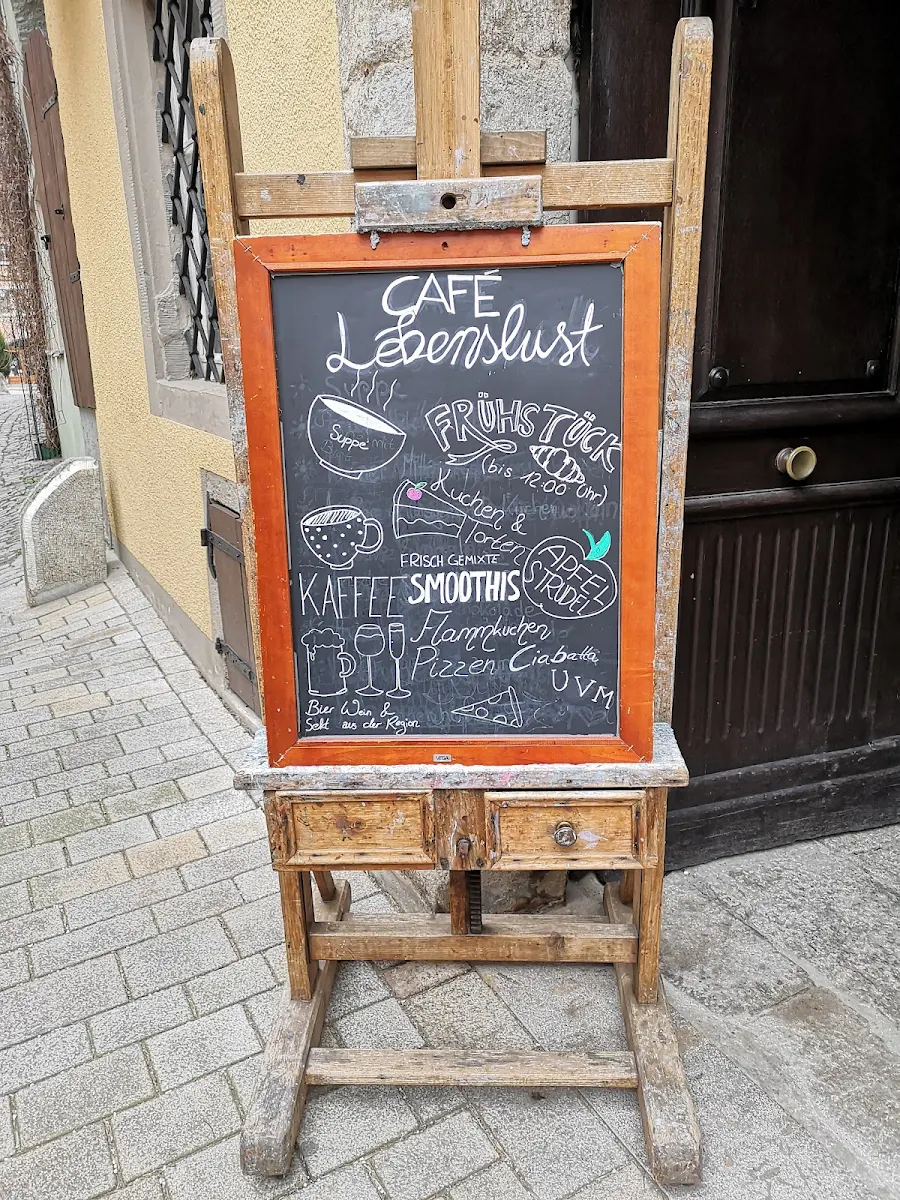 CAFÉ
Lebenslust
Suppe
FRÜHSTÜCK
(bis 12:00 Uhr)
Kuchen &
Torten
FRISCH GEMIXTE
SMOOTHIS
KAFFEE
APFEL
STRUDEL
Flammkuchen
Pizzen Ciabatta
UVM
Bier Wein &
Sekt aus der Region